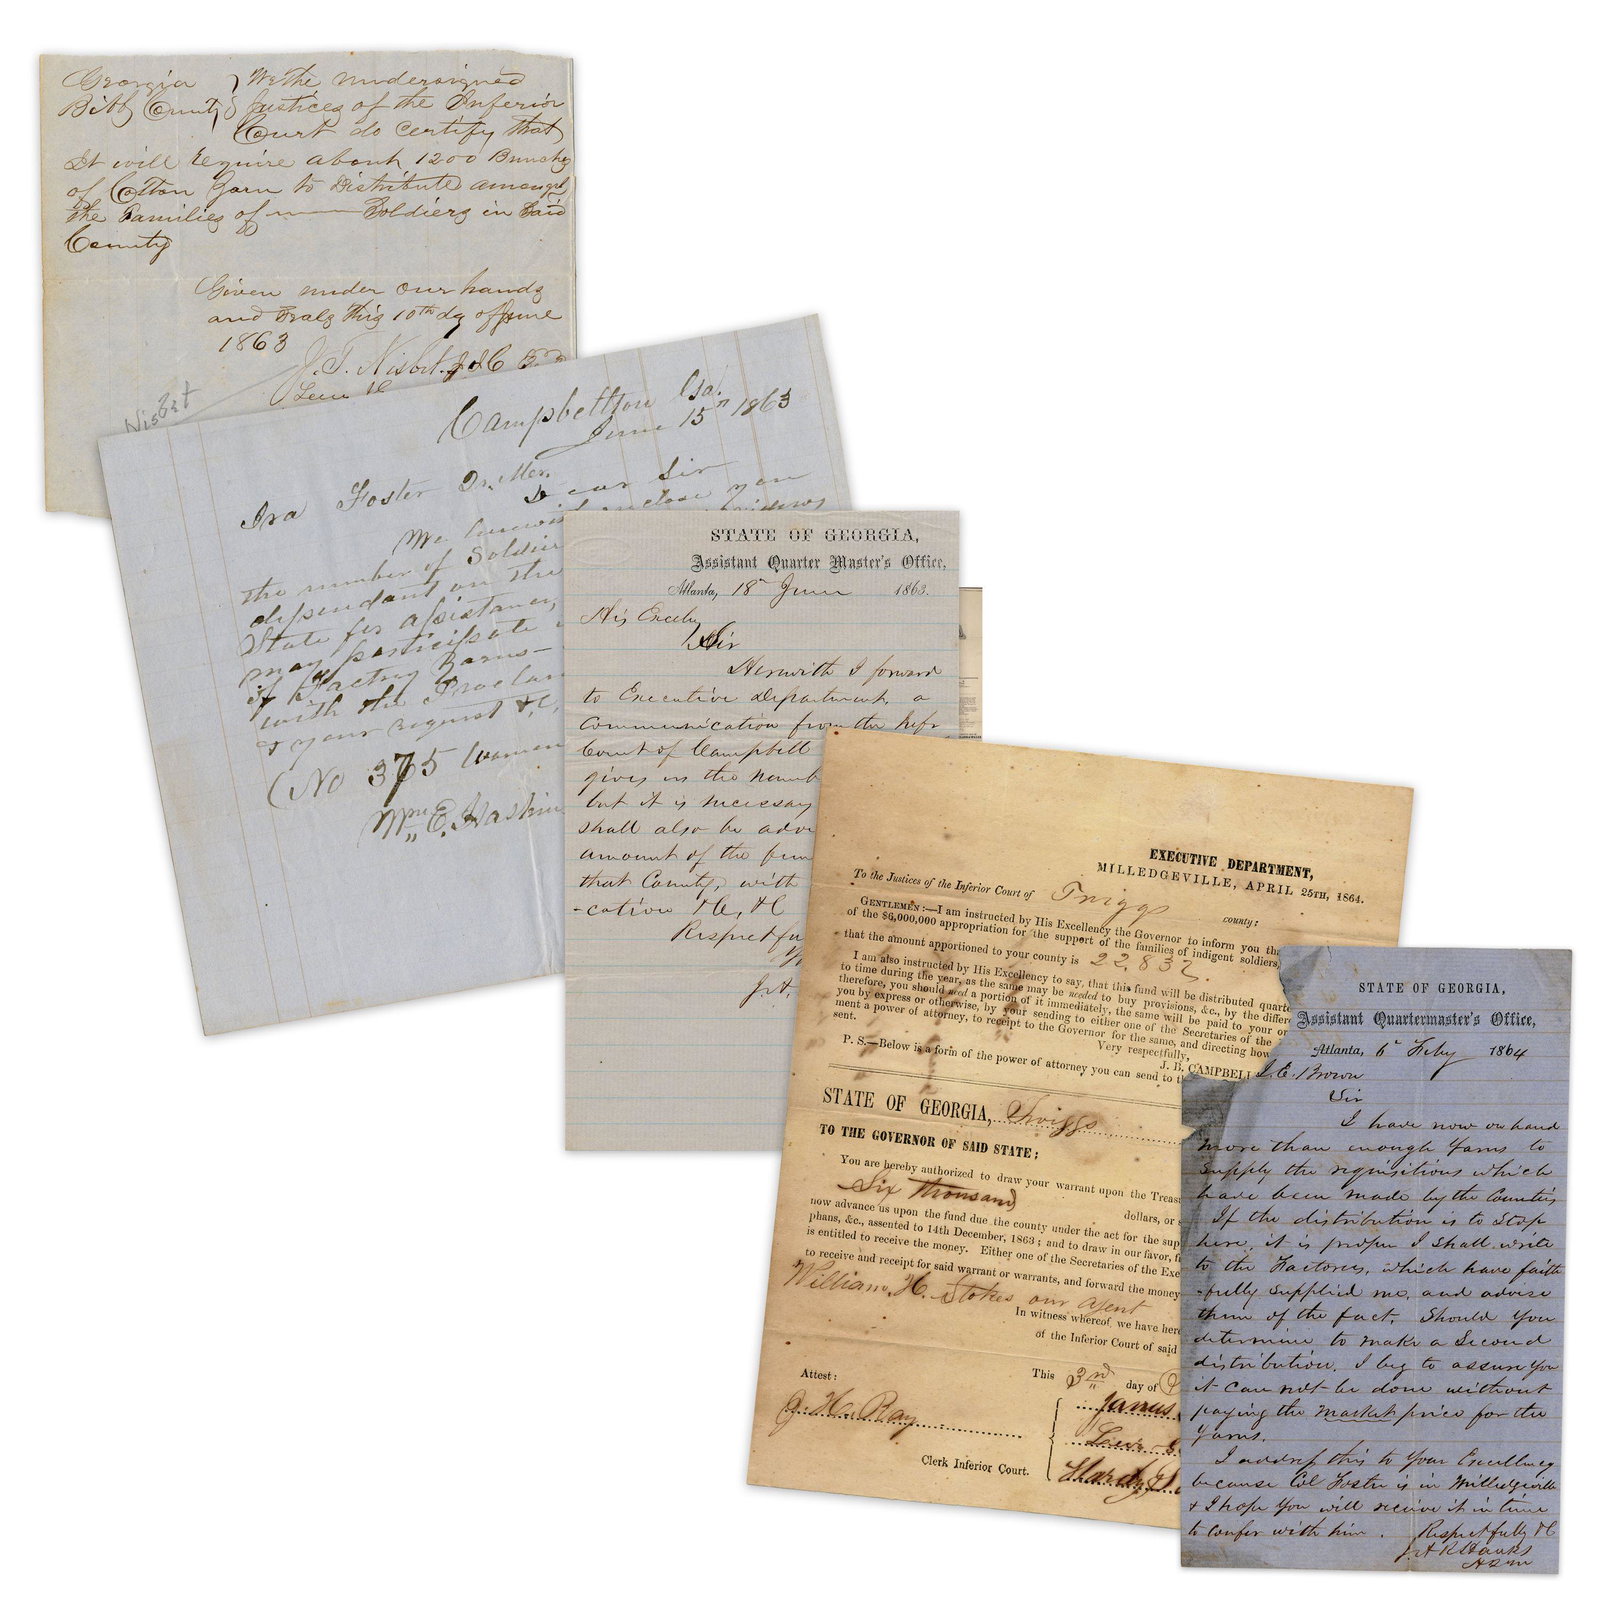 Georgia } We the undersigned
Bibb County } Justices of the Inferior
Court do certify that
It will require about 1200 Bunches
of Cotton Yarn to Distribute amongst
the Families of Soldiers in Said
County
Given under our hands
and Seals this 10th day of June
1863
J. T. Nisbet J I C B.
Nisbet
Campbellton Ga.
June 15th 1863
Ira Foster Qr. Mr.
Dear Sir
We herewith enclose you
the number of Soldier
widows
dependant on the
State for assistance,
may participate
of Factory Yarns—
with the Proclam
& your request &C,
(No 375 women
Wm. E. Haskin
STATE OF GEORGIA,
Assistant Quarter Master's Office,
Atlanta, 18th June 1863.
His Excelcy
Sir
Herewith I forward
to Executive Department, a
Communication from the Infr
Court of Campbell
givis in the numb
but it is necessary
shall also be advi
amount of the
that County, with
-cation &C, &C
Respectfu
J. A.
EXECUTIVE DEPARTMENT,
MILLEDGEVILLE, APRIL 25TH, 1864.
To the Justices of the Inferior Court of Twiggs county:
GENTLEMEN:—I am instructed by His Excellency the Governor to inform you th
of the $6,000,000 appropriation for the support of the families of indigent soldiers,
that the amount apportioned to your county is 22,837.
I am also instructed by His Excellency to say, that this fund will be distributed quarte
to time during the year, as the same may be needed to buy provisions, &c., by the differ
therefore, you should need a portion of it immediately, the same will be paid to your or
you by express or otherwise, by your sending to either one of the Secretaries of the
ment a power of attorney, to receipt to the Governor for the same, and directing how
sent.
Very respectfully,
J. B. CAMPBELL
P. S.—Below is a form of the power of attorney you can send to t
STATE OF GEORGIA, Twiggs
TO THE GOVERNOR OF SAID STATE;
You are hereby authorized to draw your warrant upon the Treas
Six Thousand dollars, or s
now advance us upon the fund due the county under the act for the sup
phans, &c., assented to 14th December, 1863; and to draw in our favor, f
is entitled to receive the money. Either one of the Secretaries of the Exe
to receive and receipt for said warrant or warrants, and forward the money
William. H. Stokes our agent
In witness whereof, we have here
of the Inferior Court of said
This 3rd day of
Attest:
J. H. Ray
Clerk Inferior Court.
James
Hardy
STATE OF GEORGIA,
Assistant Quartermaster's Office,
Atlanta, 6th Feby 1864
J. E. Brown
Sir
I have now on hand
more than enough Yarns to
supply the requisitions which
have been made by the Counties,
If the distribution is to stop
here, it is proper I shall write
to the Factories, which have faith
-fully supplied me, and advise
them of the fact. Should you
determine to make a Second
distribution, I beg to assure you
it can not be done without
paying the market price for the
Yarns.
I address this to Your Excellency
because Col Foster is in Milledgeville
& I hope you will receive it in time
to confer with him. Respectfully &C
J. A R Hanks
A Q M